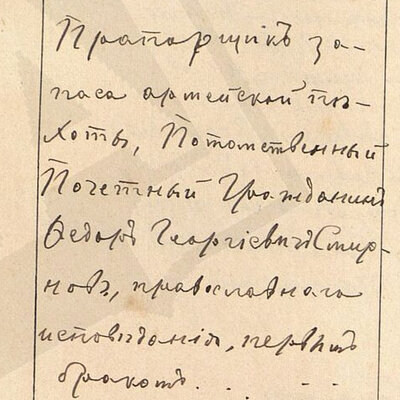 Прапорщикъ за-
паса армейской пѣ-
хоты, Потомственный
Почетный Гражданинъ
Ѳедоръ Георгіевичъ Смир-
новъ, православнаго
исповѣданія, первымъ
бракомъ. . . .